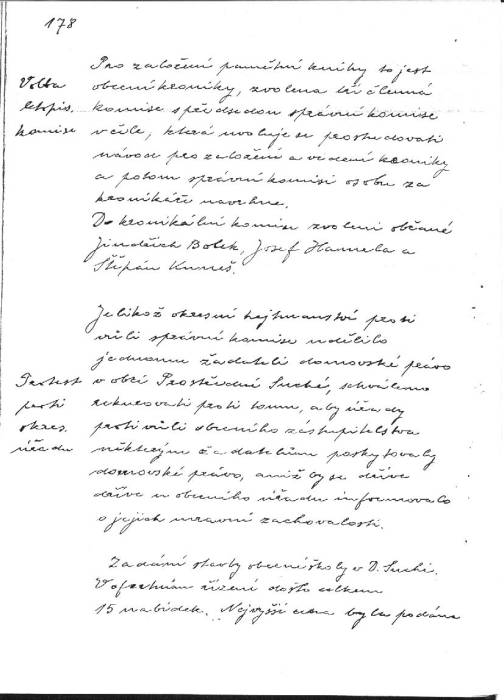 178
Pro založení pamětní knihy to jest
Volba obecní kroniky, zvolena tří členná
letopis. komise s předsedou správní komise
komise v čele, která uvoluje se prostudovati
návod pro založení a vedení kroniky
a potom správní komisi osobu za
kronikáře navrhne.
Do kronikální komise zvoleni občané
Jindřich Bolek, Josef Hamela a
Štěpán Kuneš.
Jelikož okresní hejtmanství proti
vůli správní komise udělilo
jednomu žadateli domovské právo
Protest v obci Prostřední Suché, schváleno
proti rekurovati proti tomu, aby úřady
okres. proti vůli obecního zástupitelstva
úřadu některým žadatelům poskytovaly
domovské právo, aniž by se dříve
dříve u obecního úřadu informovalo
o jejich mravní zachovalosti.
Zadání stavby obecní školy v D. Suché.
V ofertním řízení došlo celkem
15 nabídek. Nejvyšší cena byla podána